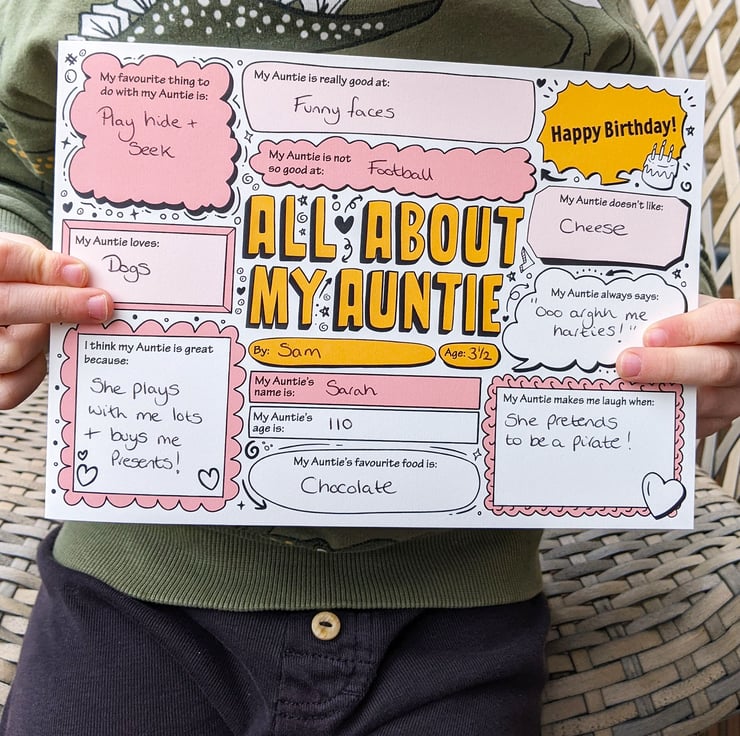 My favourite thing to
do with my Auntie is:
Play hide +
Seek
My Auntie is really good at:
Funny faces
Happy Birthday!
My Auntie is not
so good at:
Football
My Auntie doesn't like:
Cheese
My Auntie loves:
Dogs
ALL ABOUT
MY AUNTIE
My Auntie always says:
"Ooo arghh me
harties!"
By: Sam
Age: 3½
I think my Auntie is great
because:
She plays
with me lots
+ buys me
Presents!
My Auntie's
name is:
Sarah
My Auntie's
age is:
110
My Auntie's favourite food is:
Chocolate
My Auntie makes me laugh when:
She pretends
to be a pirate!